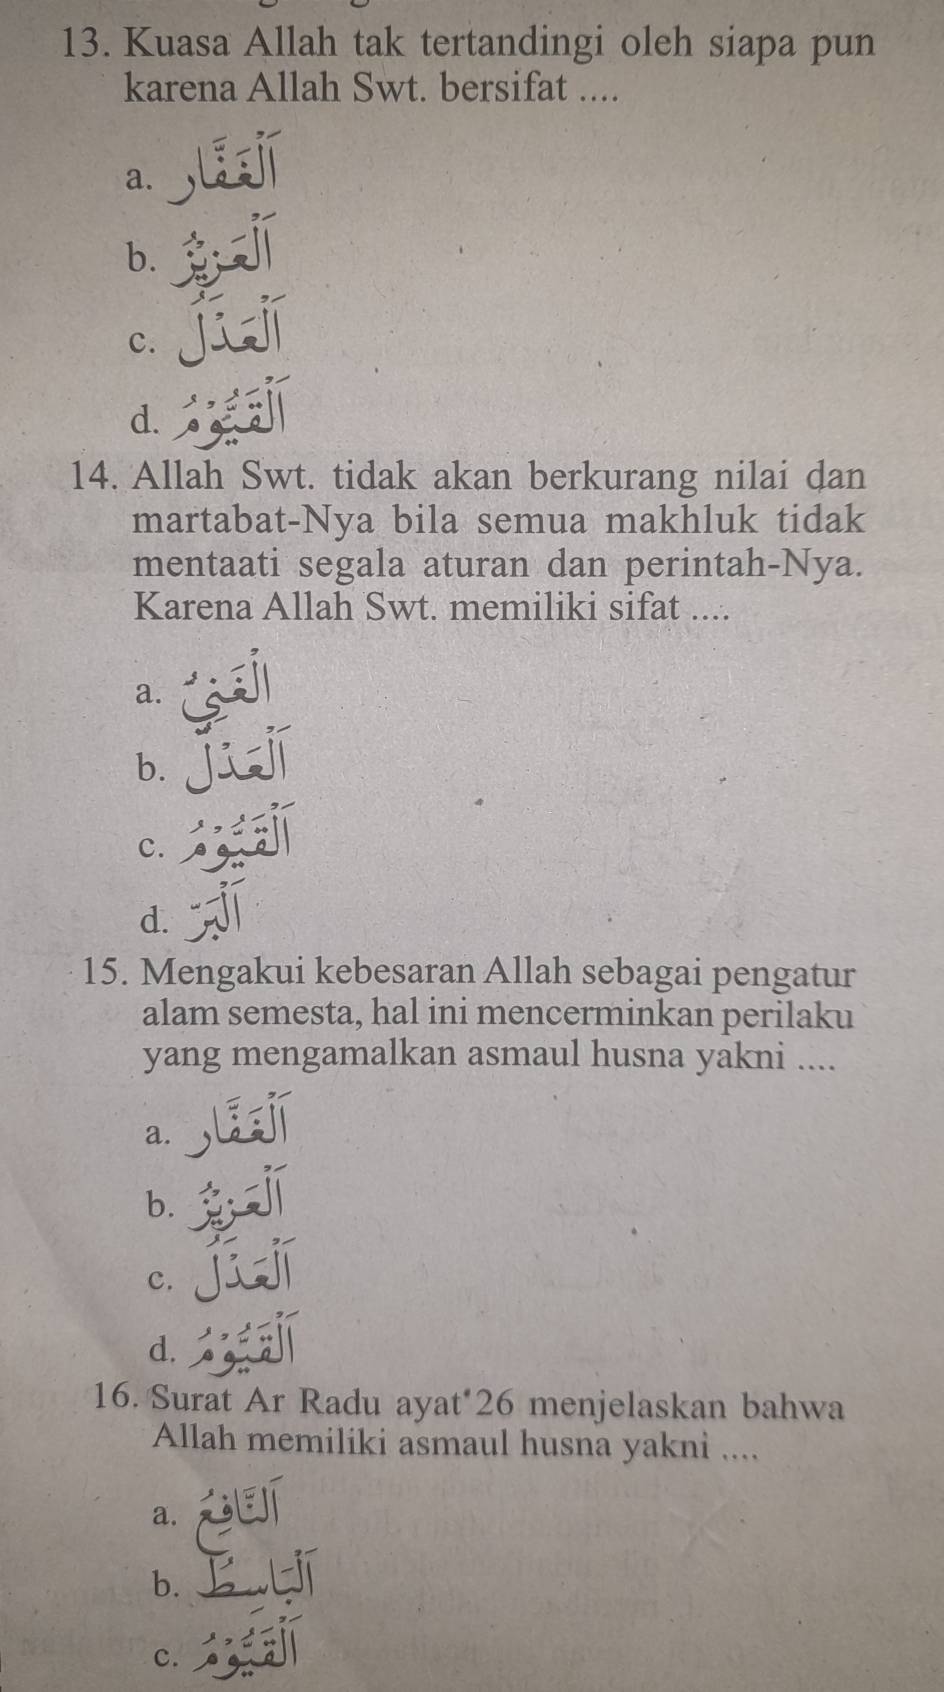 13. Kuasa Allah tak tertandingi oleh siapa pun
karena Allah Swt. bersifat ....
a. اَلْغَفَّار
b. اَلْعَزِيْزُ
c. اَلْعَدْلُ
d. اَلْقَيُّوْمُ
14. Allah Swt. tidak akan berkurang nilai dan
martabat-Nya bila semua makhluk tidak
mentaati segala aturan dan perintah-Nya.
Karena Allah Swt. memiliki sifat ....
a. الْغَنِيُّ
b. اَلْعَدْلُ
c. اَلْقَيُّوْمُ
d. اَلْبَرّ
15. Mengakui kebesaran Allah sebagai pengatur
alam semesta, hal ini mencerminkan perilaku
yang mengamalkan asmaul husna yakni ....
a. اَلْغَفَّار
b. اَلْعَزِيْزُ
c. اَلْعَدْلُ
d. اَلْقَيُّوْمُ
16. Surat Ar Radu ayat 26 menjelaskan bahwa
Allah memiliki asmaul husna yakni ....
a. اَلنَّافِعُ
b. اَلْبَاسِطُ
c. اَلْقَيُّوْمُ